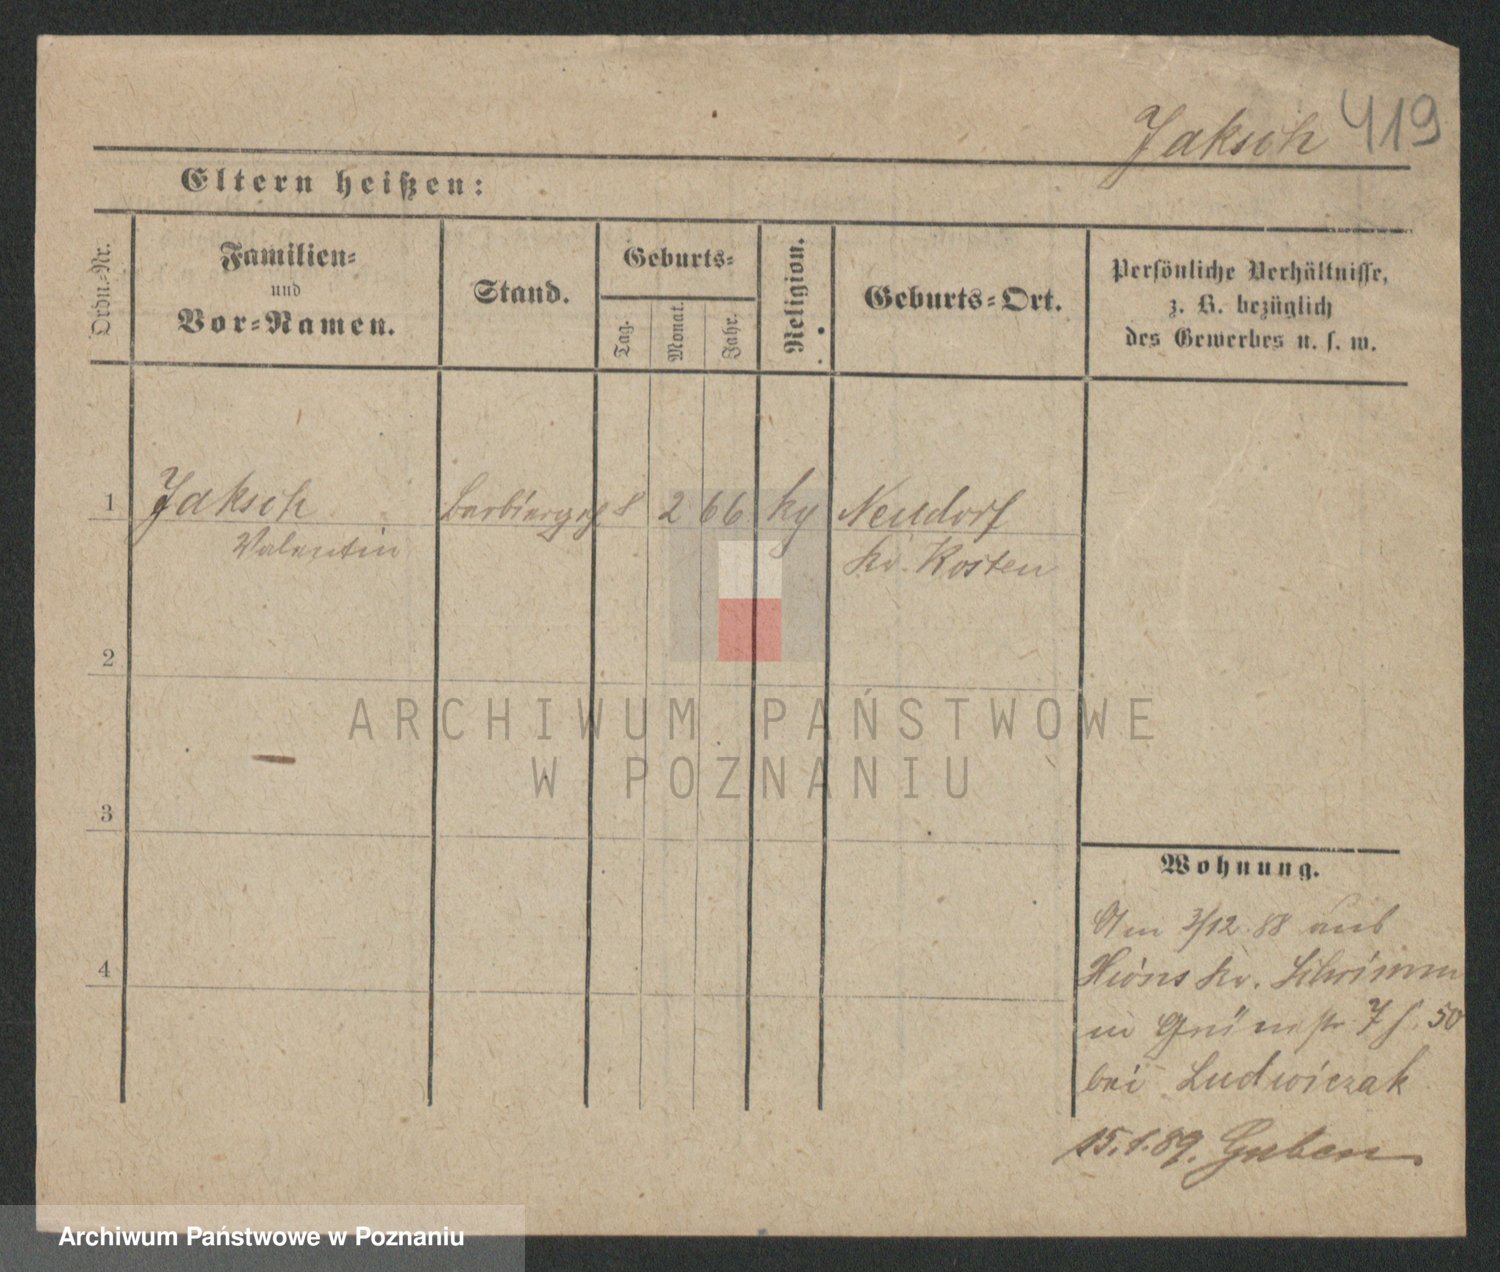 Jaksch 419
Eltern heißen:
Ordn.-Nr.
Familien-
und
Vor-Namen.
Stand.
Geburts-
Tag.
Monat.
Jahr.
Religion.
Geburts-Ort.
Persönliche Verhältnisse,
z. B. bezüglich
des Gewerbes u. s. w.
1 Jaksch Barbiergeh 8 2 66 kg Neudorf
Valentin Kr. Kosten
2
3
4
Wohnung.
Am 3/12 88 aus
Kr. Schrimm
in Grünstr 7 50
bei Ludwiczak
15.1.89. Guben
ARCHIWUM PAŃSTWOWE
W POZNANIU
Archiwum Państwowe w Poznaniu